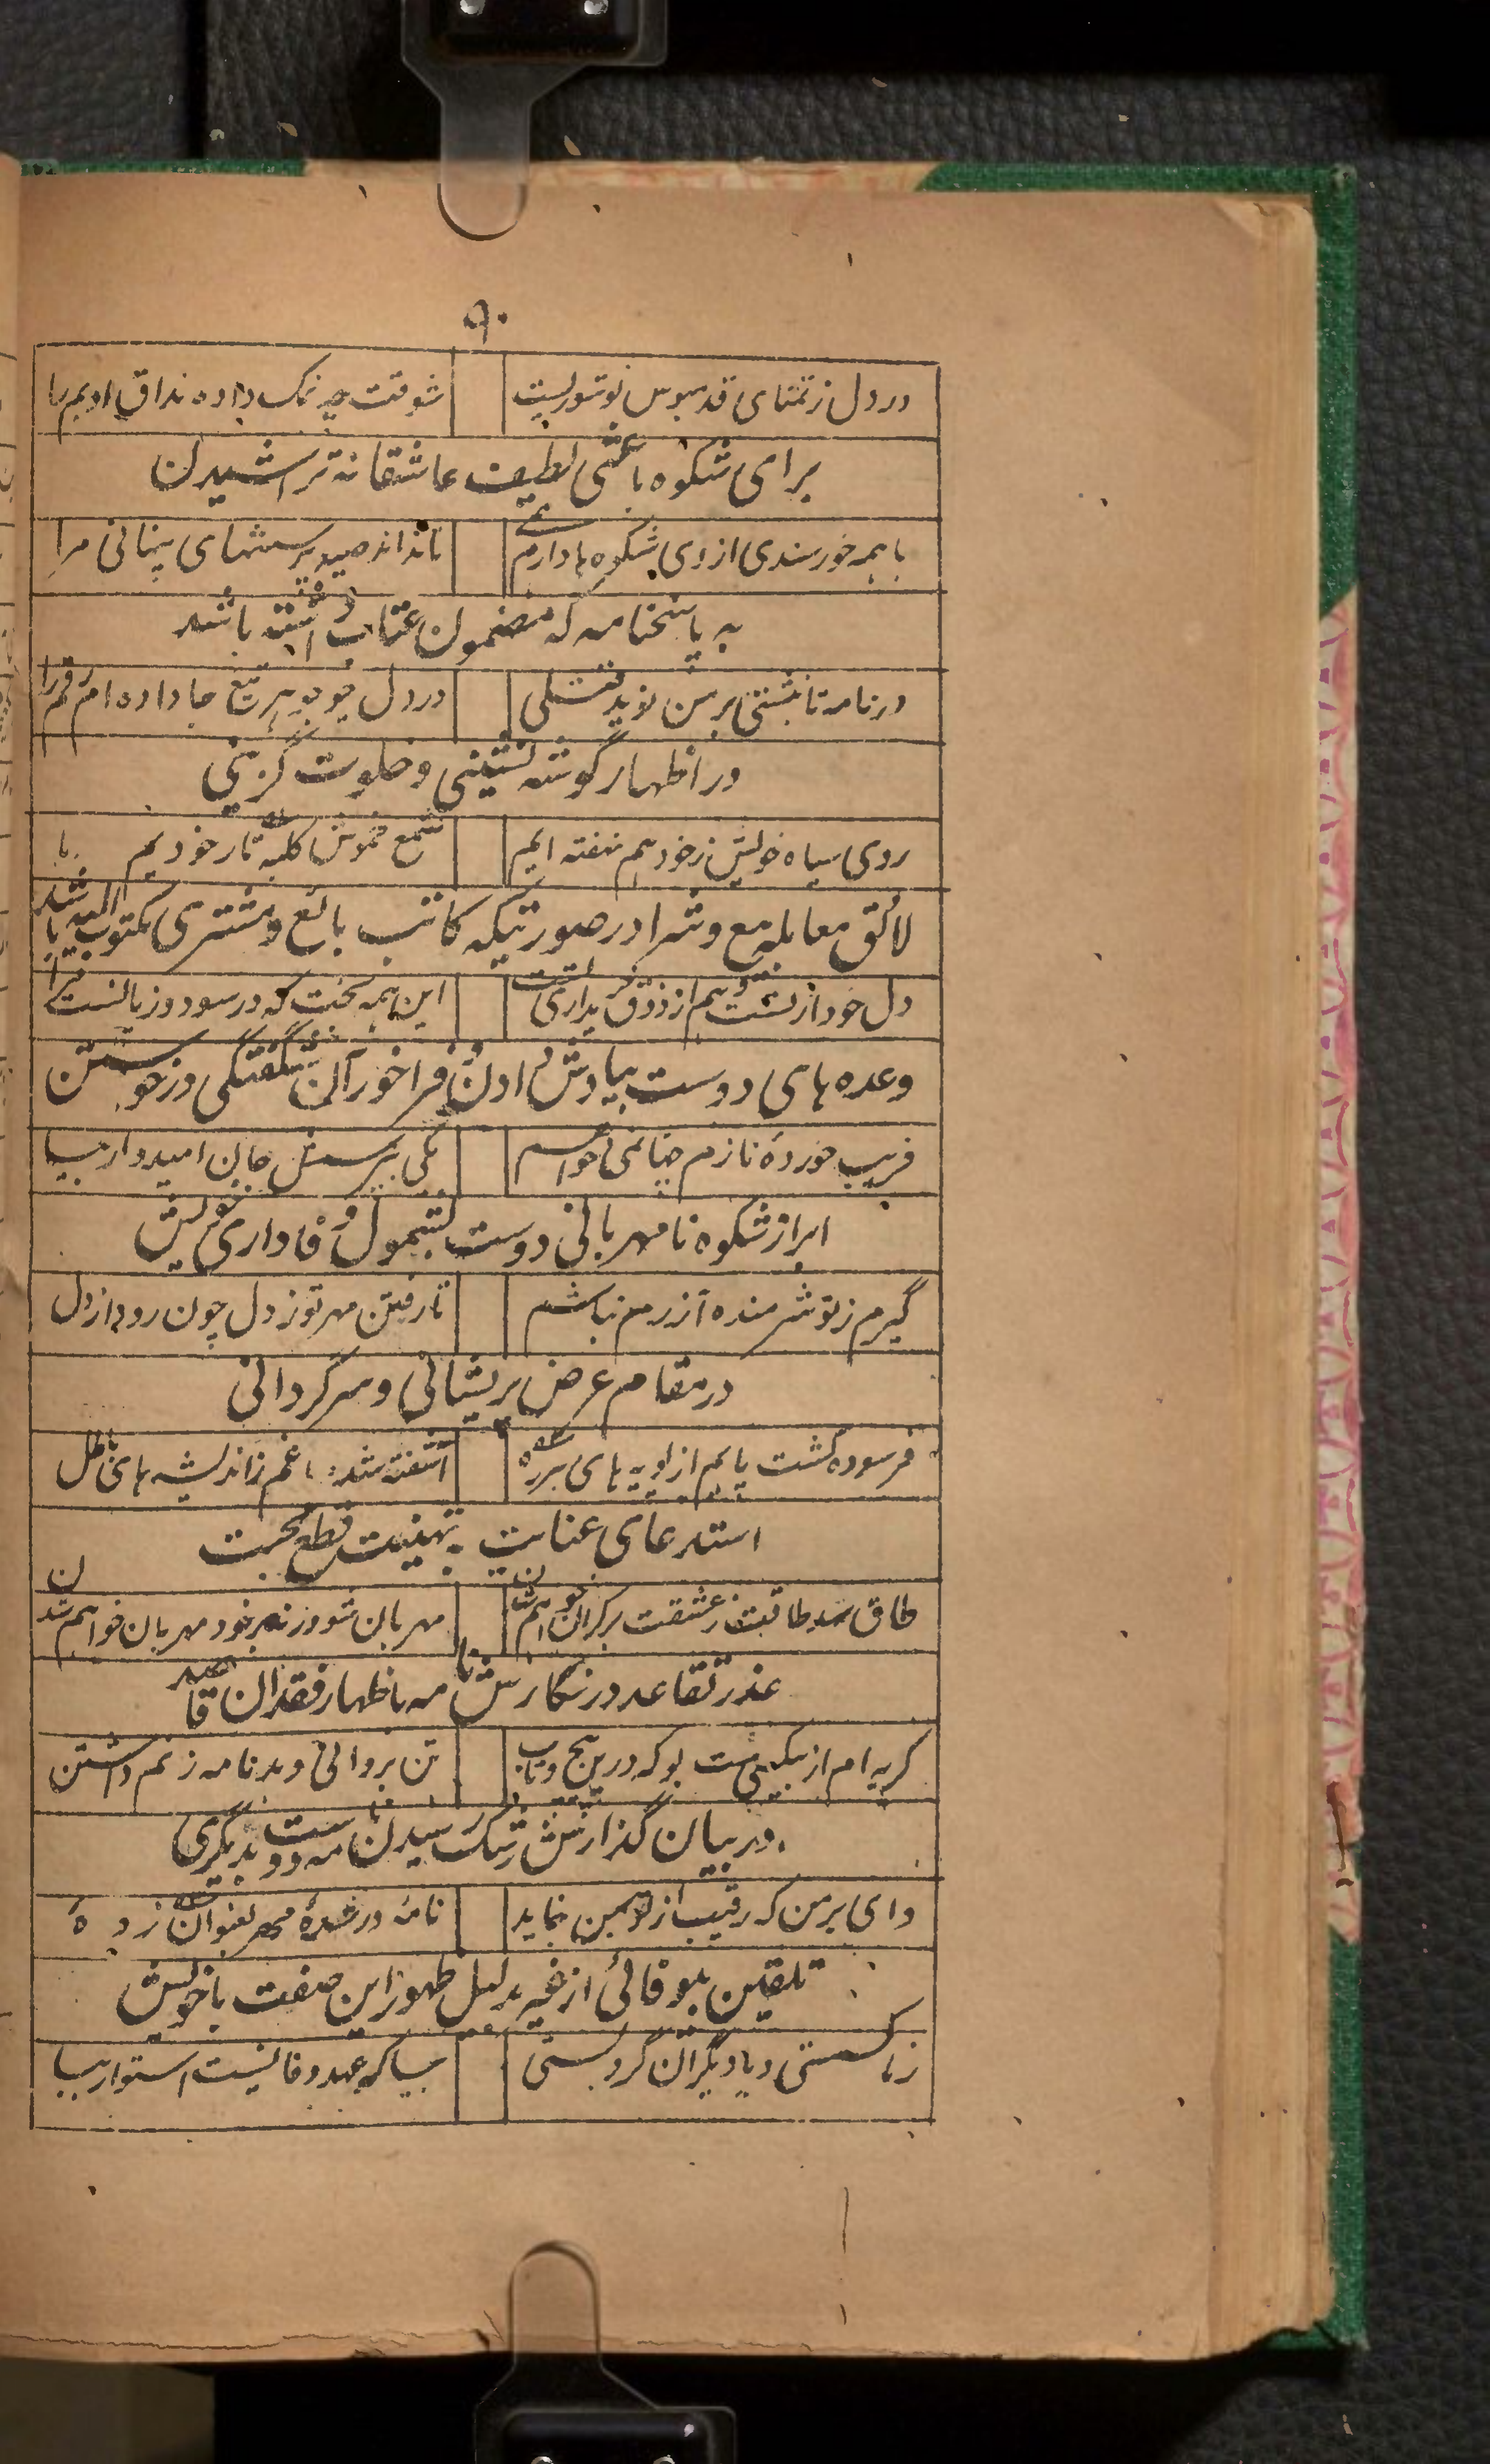 ۹۰
در دل ز تمنای قدمبوس تو شوریست شوقت چه نمک داده مذاق ادبم را
برای شکوه باعثی لطیف عاشقانه تراشیدن
با همه خورسندی از وی شکوه ها دارم همی تا نداند صید پرسشهای پنهانی مرا
به پاسخنامه که مضمون عتاب داشته باشد
در نامه تا نبشتی بر من نوید قتلی در دل چو جوهر تیغ جا داده ام رقم را
در اظهار گوشه نشینی و خلوت گزینی
روی سیاه خویش ز خود هم نهفته ایم شمع خموش کلبه تار خودیم ما
لائق معامله بیع و شرا در صورتیکه کاتب بائع و مشتری مکتوب الیه باشد
دل خود از تست و هم از ذوق خریداری تست این همه بحث که در سود و زیانست مرا
وعده های دوست بیادش دادن و فراخور آن شگفتگی در خواستن
فریب خوردهٔ نازم چها نمی خواهم یکی بپرسش جان امیدوار بیا
ابراز شکوه نامهربانی دوست بشمول وفاداری خویش
گیرم ز تو شرمنده آزرم نباشم تا رفتن مهر تو ز دل چون رود از دل
در مقام عرض پریشانی و سرگردانی
فرسوده گشت پایم از پویه های هرزه آشفته شد دماغم ز اندیشه های باطل
استدعای عنایت به تهنیت قطع محبت
طاق شد طاقت ز عشقت بر کران خواهم شدن مهربان شو ورنه بر خود مهربان خواهم شدن
عذر تقاعد در نگارش نامه باظهار فقدان قاصد
گریه ام از بیکسی ست بو که درین پیچ و تاب تن بروانی دهد نامه ز نم داشتن
در بیان گذارش رشک رسیدن نامه دوست بدیگری
وای بر من که رقیب از تو بمن بنماید نامهٔ وا شدهٔ مهر بعنوان زدهٔ
تلقین بیوفائی از غیر بدلیل ظهور این صفت با خویش
ز ما گسستی و با دیگران گرو بستی بیا که عهد وفا نیست استوار بیا